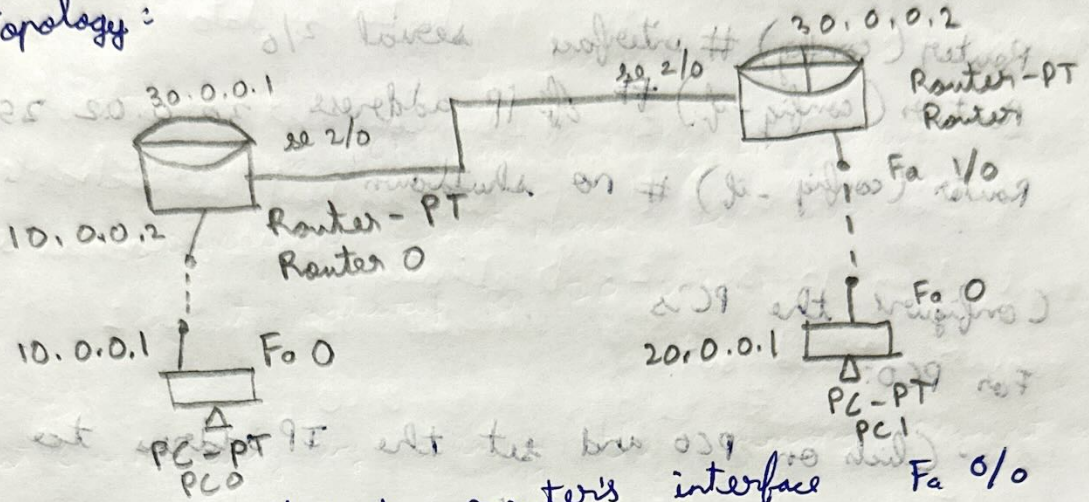 opology :
30.0.0.2
se 2/0
Router-PT
Router
30.0.0.1
se 2/0
Fa 1/0
10.0.0.2
Router-PT
Router 0
Fa 0
10.0.0.1
Fa 0
20.0.0.1
PC-PT
PC1
PC-PT
PC0
ter's interface Fa 0/0